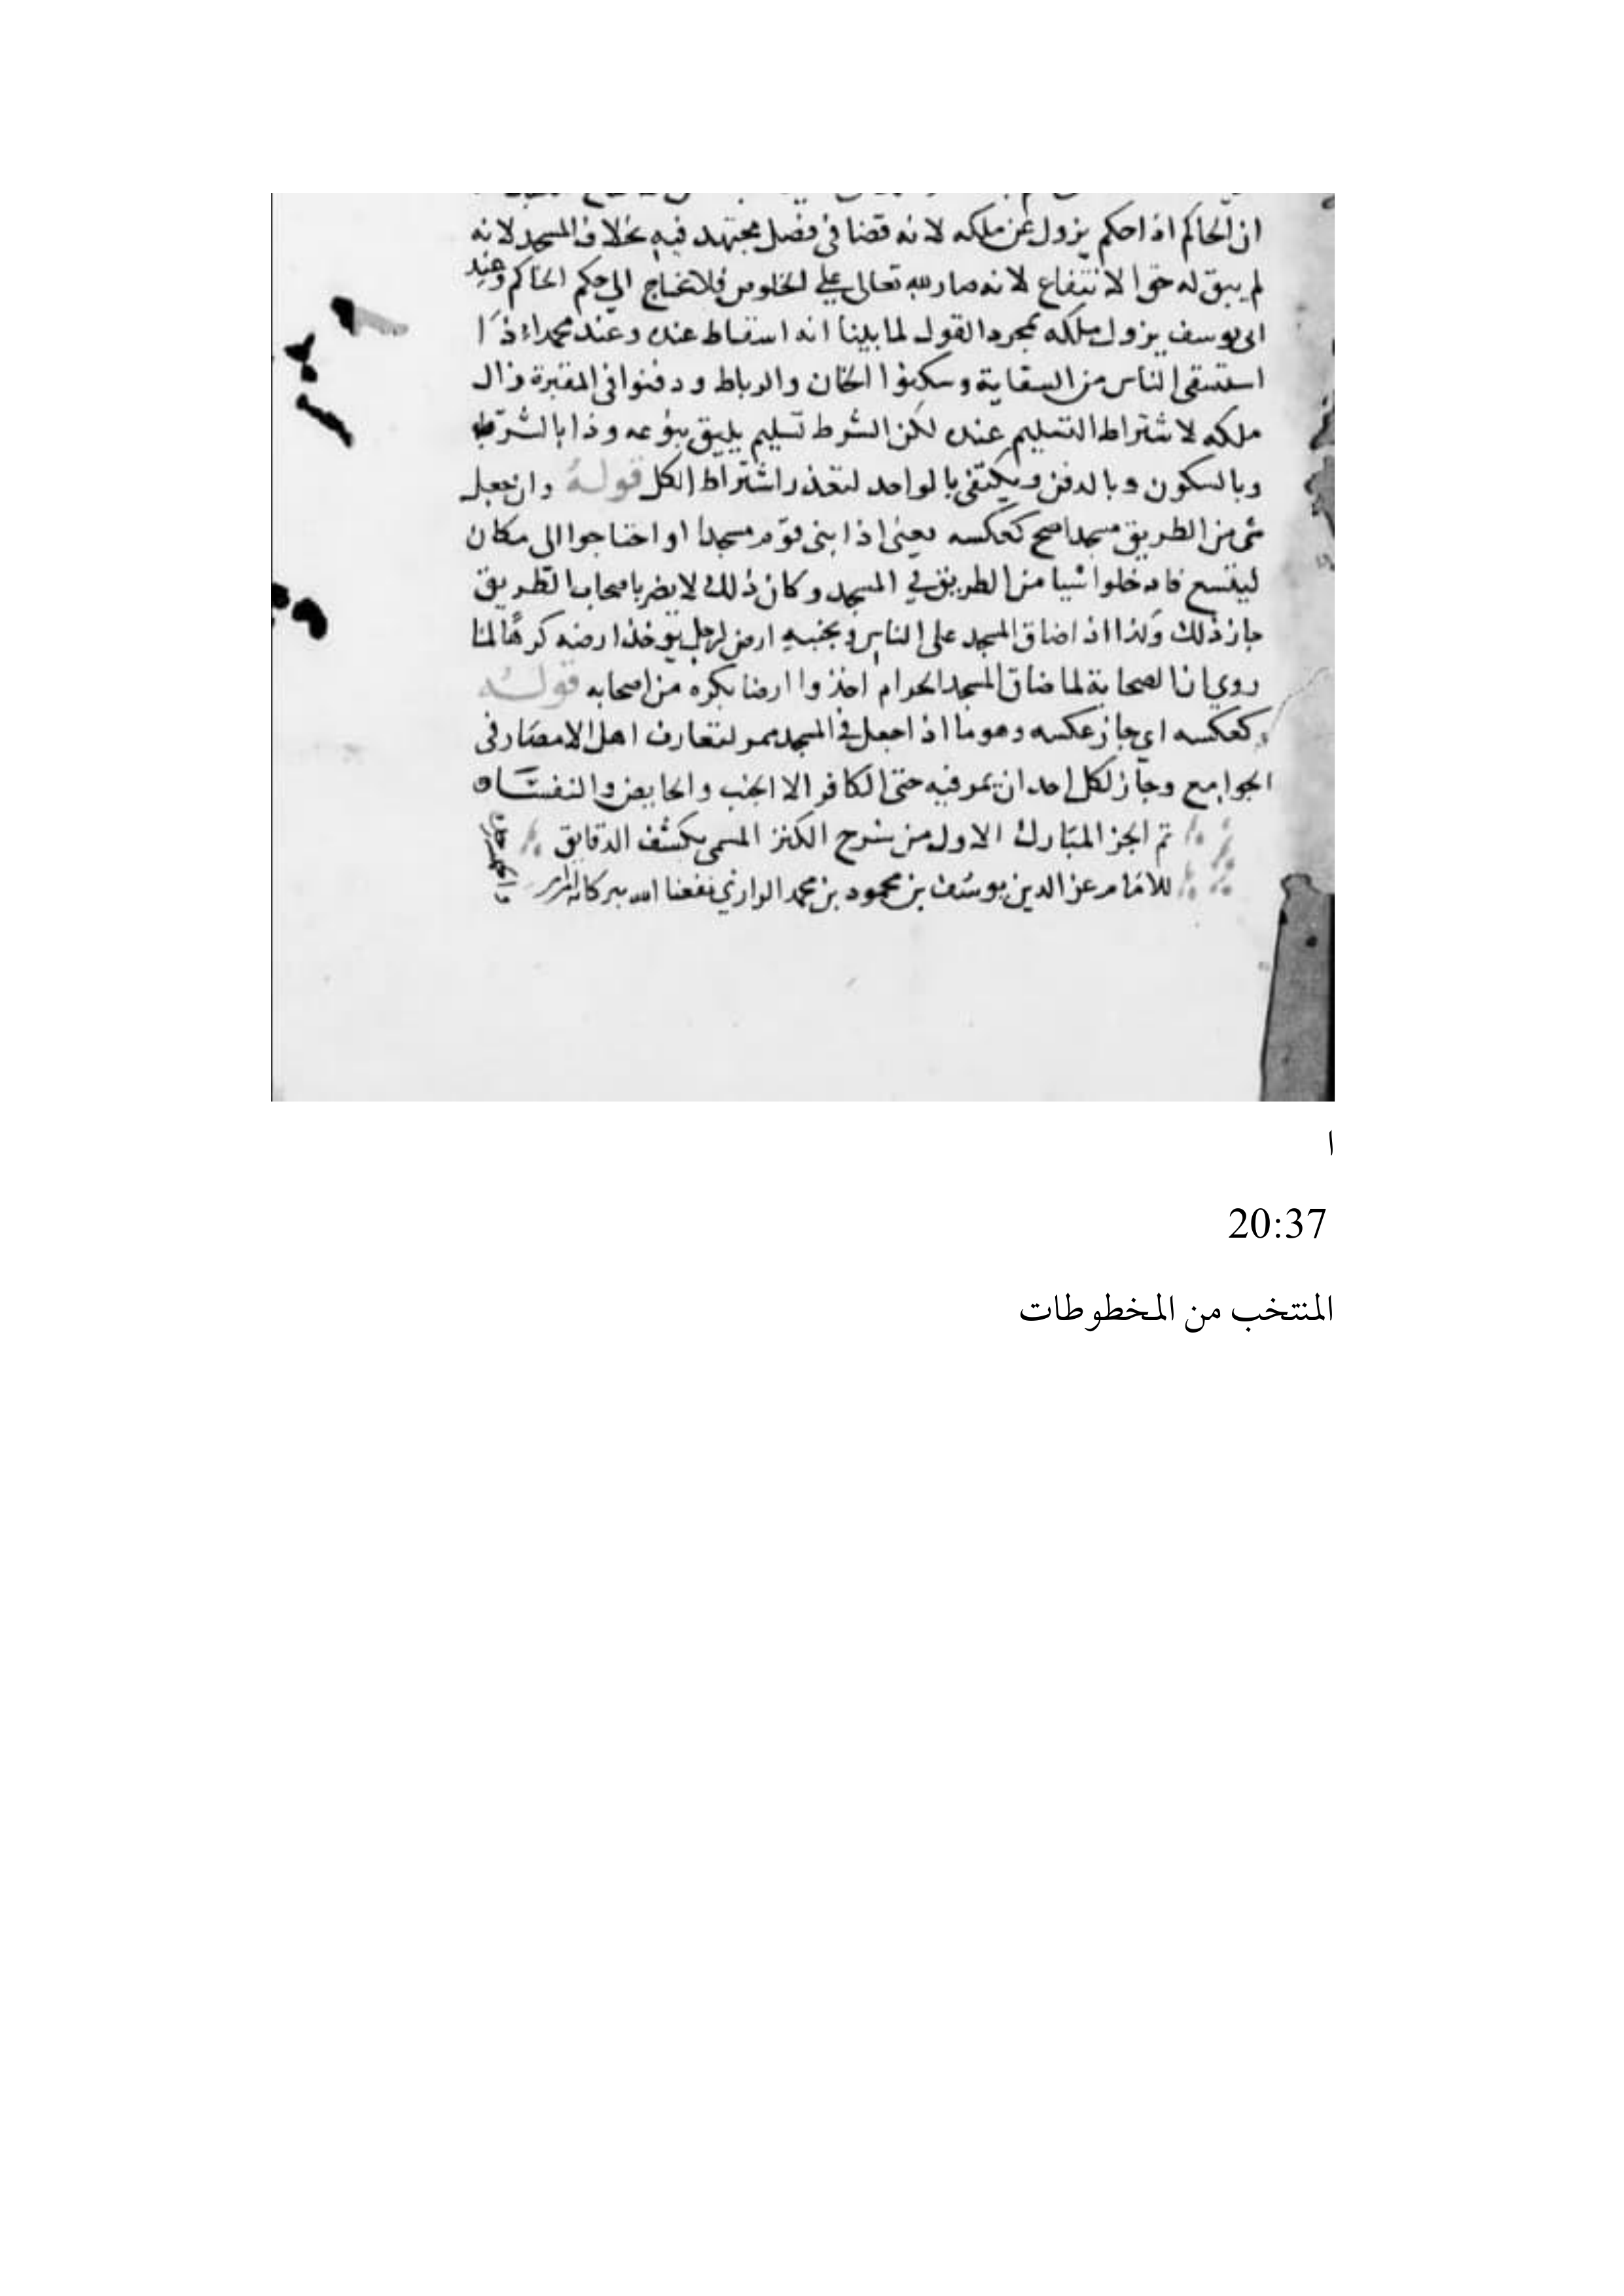 ان الحاكم اذا حكم يزول عن ملكه لانه قضا في فصل مجتهد فيه بخلاف المسجد لانه
لم يبق له حق الانتفاع لانه صار لله تعالى على الخلوص فلا تحتاج الى حكم الحاكم وعند
ابى يوسف يزول ملكه بمجرد القول لما بينا انه اسقاط عنده وعند محمد اذا
استسقى الناس من السقاية وسكنوا الخان والرباط ودفنوا فى المقبرة زال
ملكه لاشتراط التسليم عنده لكن الشرط تسليم يليق بنوعه وذا بالشرب
وبالسكون وبالدفن ويكتفى بالواحد لتعذر اشتراط الكل قوله وان جعل
شى من الطريق مسجدا صح كعكسه يعنى اذا بنى قوم مسجدا او احتاجوا الى مكان
ليتسع فادخلوا شيا من الطريق في المسجد وكان ذلك لا يضر باصحاب الطريق
جاز ذلك ولذا اذا ضاق المسجد على الناس وبجنبه ارض لرجل يوخذ ارضه كرها لما
روي ان الصحابة لما ضاق المسجد الحرام اخذوا ارضا بكره من اصحابه قوله
كعكسه اي جاز عكسه وهو ما اذا جعل في المسجد ممر لتعارف اهل الامصار فى
الجوامع وجاز لكل احد ان يمر فيه حتى الكافر الا الجنب والحايض والنفساء
تم الجز المبارك الاول من شرح الكنز المسمى بكشف الدقايق
للامام عز الدين يوسف بن محمود بن محمد الرازي نفعنا الله ببركاته
ا
20:37
المنتخب من المخطوطات